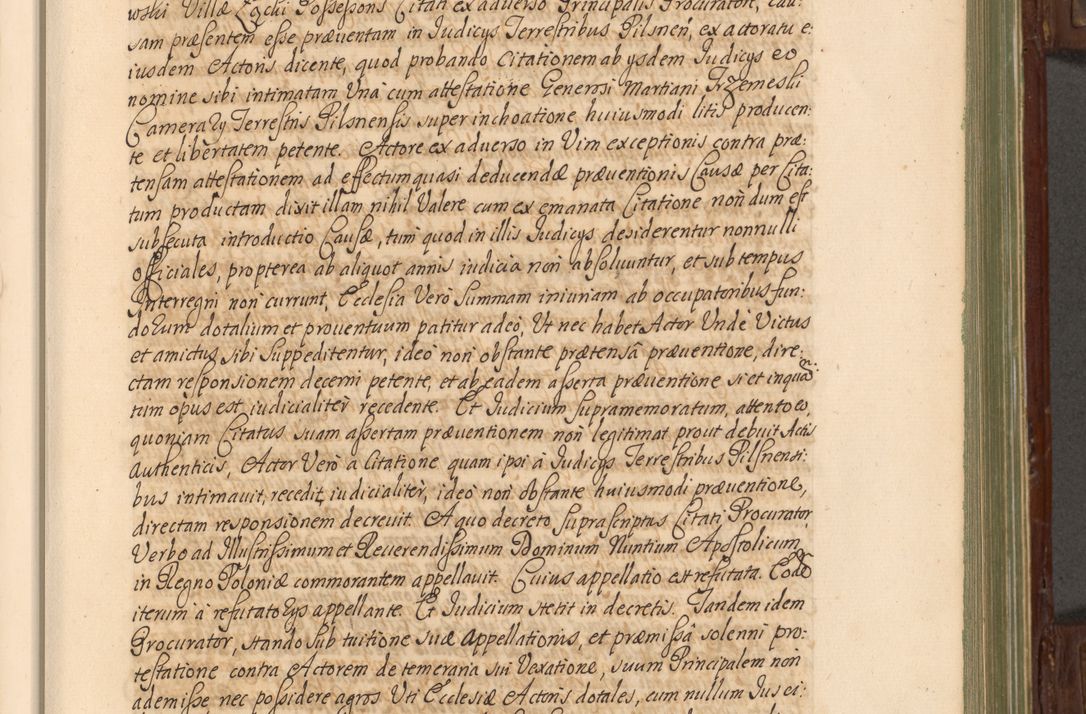 wski Villæ Zgcki Possessoris Citati ex adverso Principalis Procuratore, Cau:
sam præsentem esse præventam in Judicijs Terrestribus Pilsnen, ex actoratu e:
iusdem Actoris dicente, quod probando Citationem ab ijsdem Judicijs eo
nomine sibi intimatam Una cum attestatione Generosi Martiani Trzemeski
Camerarij Terrestris Pilsnensis super inchoatione huiusmodi litis producen:
te et libertatem petente. Actore ex adverso in Vim exceptionis contra præ:
tensam attestationem ad effectum quasi deducendæ præventionis Causæ per Cita:
tum productam dixit illam nihil Valere cum ex emanata Citatione non dum est
subsecuta introductio Causæ, tum quod in illis Judicijs desiderentur nonnulli
officiales, propterea ab aliquot annis iudicia non absolvuntur, et sub tempus
Interregni non currunt, Ecclesia Verò Summam iniuriam ab occupatoribus fun:
dorum dotalium et proventuum patitur adeò, Ut nec habet Actor Undè Victus
et amictus sibi suppeditentur, ideò non obstante prætensâ præventione, dire:
ctam responsionem decerni petente, et ab eadem asserta præventione si et inquan:
tum opus est iudicialiter recedente. Et Judicium supramemoratum, attento eo,
quoniam Citatus suam assertam præventionem non legitimat prout debuit Actis
Authenticis, Actor Verò a Citatione quam ipsi à Judicijs Terrestribus Pilsnensi:
bus intimavit, recedit iudicialiter, ideò non obstante huiusmodi præventione,
directam responsionem decrevit. A quo decreto suprascriptus Citati Procurator
Verbo ad Illustrissimum et Reverendissimum Dominum Nuntium Apostolicum
in Regno Poloniæ commorantem appellavit. Cuius appellatio est refutata. Eodem
iterum à refutatorijs appellante. Et Judicium stetit in decretis. Tandem idem
Procurator, stando sub tuitione suæ Appellationis, et præmissâ solenni pro:
testatione contra Actorem de temeraria sui Vexatione, suum Principalem non
ademisse nec possidere agros Uti Ecclesiæ Actoris dotales, cum nullum Jus ei: